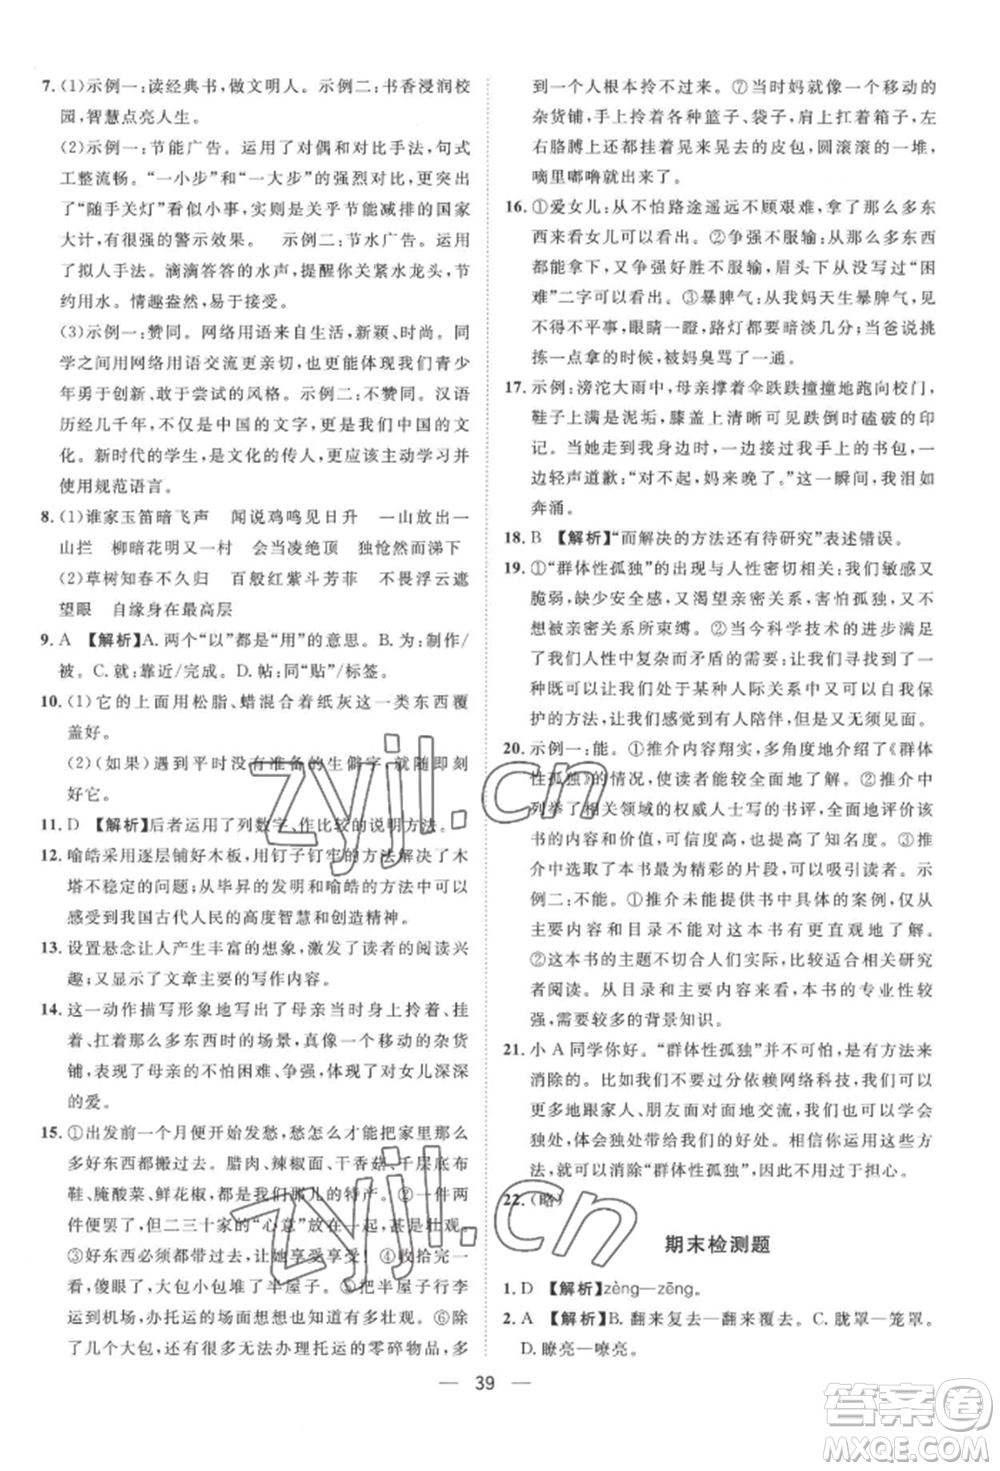 7. (1)示例一:读经典书,做文明人。示例二:书香浸润校
园,智慧点亮人生。
(2)示例一:节能广告。运用了对偶和对比手法,句式
工整流畅。“一小步”和“一大步”的强烈对比,突出了
“随手关灯”看似小事,实则是关乎节能减排的国家
大计,有很强的警示效果。 示例二:节水广告。运用
了拟人手法。滴滴答答的水声,提醒你关紧水龙头,节
约用水。情趣盎然,易于接受。
(3)示例一:赞同。网络用语来自生活,新颖、时尚。同
学之间用网络用语交流更亲切,也体现了我们青少
年勇于创新、敢于尝试的风格。示例二:不赞同。汉语
历经几千年,不仅是中国的文字,更是中国的文化传
承。新时代的学生,是文化的传人,更应该主动学习并
使用规范语言。
8. (1)谁家玉笛暗飞声 闻说鸡鸣见日升 一山放出一
山拦 柳暗花明又一村 会当凌绝顶 独怆然而涕下
(2)草树知春不久归 百般红紫斗芳菲 不畏浮云遮
望眼 自缘身在最高层
9. A 【解析】A.两个“以”都是“用”的意思。B.为:制作/
被。C.就:靠近/完成。D.帖:同“贴”/标签。
10. (1)它的上面用松脂、蜡混合着纸灰这一类东西覆
盖好。
(2)(如果)遇到平时没有准备的生僻字,就随即刻
好它。
11. D 【解析】后者运用了列数字、作比较的说明方法。
12. 喻皓采用逐层铺好木板,用钉子钉牢的方法解决了木
塔不稳定的问题;从毕昇的发明和喻皓的方法中可以
感受到我国古代人民的高度智慧和创造精神。
13. 设置悬念让人产生丰富的想象,激发了读者的阅读兴
趣;又显示了文章主要的写作内容。
14. 这一动作描写形象地写出了母亲当时身上拎着、挂
着、扛着那么多东西时的样子,像一个移动的杂货
铺,表现了母亲的不怕困难、争强,体现了对女儿深深
的爱。
15. ①出发前一个月便开始发愁,愁怎样才能把家里那么
多好东西都搬过来。腊肉、辣椒面、干香菇、千层底布
鞋、腌酸菜、鲜花椒,都是我们那儿的特产。②一两
件便罢了,但二三十家的“心意”放在一起,甚是壮观。
③好东西必须都带过去,让她享受享受!④收拾完一
看,傻眼了,大包小包堆了半屋子。⑤把半屋子行李
运到机场,办托运的场面想想也知道有多壮观。⑥除
了几个大包,还有很多无法办理托运的零碎物品,多
到一个人根本拎不过来。⑦当时我妈就像一个移动的
杂货铺,手里拎着各种篮子、袋子,肩上扛着箱子,两
右胳膊还挂着晃来晃去的皮包,圆滚滚的一堆,
嘀里嘟噜就出发了。
16. ①爱女儿:从不怕路途遥远不顾艰难,带那么多东
西来看女儿可以看出。②争强不服输:从那么多东西
都能带来,且争强好胜不服输,眉头上从没写过“困
难”二字可以看出。③暴脾气:从我妈天生暴脾气,见
不得不平事,眼睛一瞪,路灯都要暗淡几分;当爸说挑
拣一点拿的时候,被妈臭骂了一通。
17. 示例:滂沱大雨中,母亲撑着伞跌跌撞撞地跑向校门,
鞋子上满是泥垢,膝盖上清晰可见跌倒时磕破的印
记。当她走到我身边时,一边接过我手上的书包,一
边轻声道歉:“对不起,妈来晚了。”这一瞬间,我泪如
奔涌。
18. B 【解析】“而解决的方法还有待研究”表述错误。
19. ①“群体性孤独”的出现与人性密切相关:我们敏感又
脆弱,缺少安全感,又渴望亲密关系;不想孤独,又害怕
被亲密关系所束缚。②当今科学技术的迅速发展满足
了我们人性中复杂而矛盾的需要:让我们找到了一
种既可以让我们处于某种人际关系中又可以自我保
护的方法,让我们感到有人陪伴,但又无须见面。
20. 示例一:能。①推介内容翔实,多角度地介绍了《群体
性孤独》的情况,使读者能较全面地了解。②推介中
列举了相关领域的权威人士写的书评,充分评价该书
的内容和价值,有力度,能引起读者的重视。③
推介中选取了本书最精彩的片段,可以吸引读者。示
例二:不能。①推介未能提供书中具体的案例,例如
无法更直观地让大家对这本书有更直观的了解。
②这本书的主题不一定切合人们实际,不一定符合读
者阅读。③推介中可以看出,本书的专业性较
强,需要较多的背景知识。
21. 小A同学你好。“群体性孤独”并不可怕,是有方法来
消除的。比如,我们不要过分依赖网络科技,可以
更多地跟家人、朋友面对面地交流,我们也可以学会
独处,体会独处带给我们的好处。相信你运用这些方
法,就可以消除“群体性孤独”,从而不用过于担心。
22. (略)
期末检测题
1. D 【解析】zèng—zēng。
2. A 【解析】B.翻复去—翻来覆去。C.胧罩—笼罩。
D.瞭亮—嘹亮。
39
zyjl.cn
zyjl.cn
答案卷
MXQE.COM